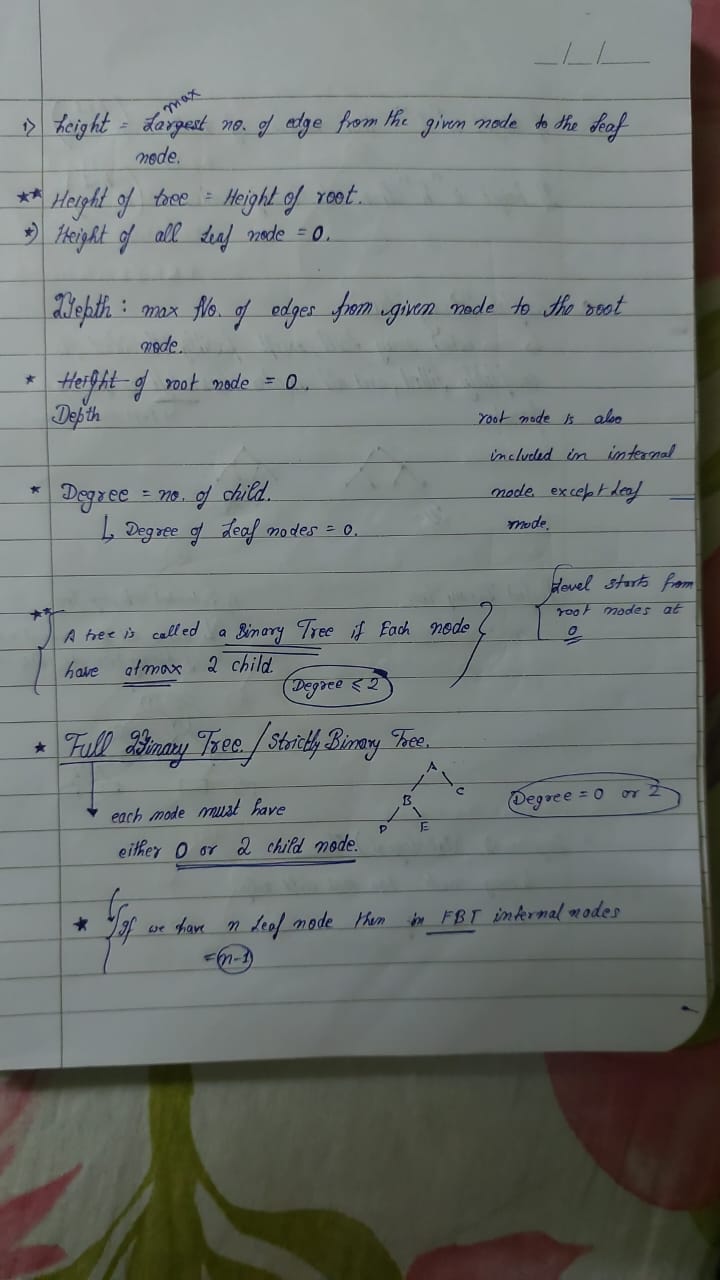 _/_/__
max
1) height = Largest no. of edge from the given node to the Leaf
node.
** Height of tree = Height of root.
*) Height of all Leaf node = 0.
Depth : max No. of edges from given node to the root
node.
* Height of root node = 0.
Depth
root node is also
included in internal
node except Leaf
node.
* Degree = no. of child.
↳ Degree of Leaf nodes = 0.
Level starts from
root nodes at
0
** A tree is called a Binary Tree if Each node
have atmax 2 child.
Degree ≤ 2
* Full Binary Tree / Strictly Binary Tree.
A
B C
D E
Degree = 0 or 2
each node must have
either 0 or 2 child node.
* If we have n Leaf node then in FBT internal nodes
= n-1